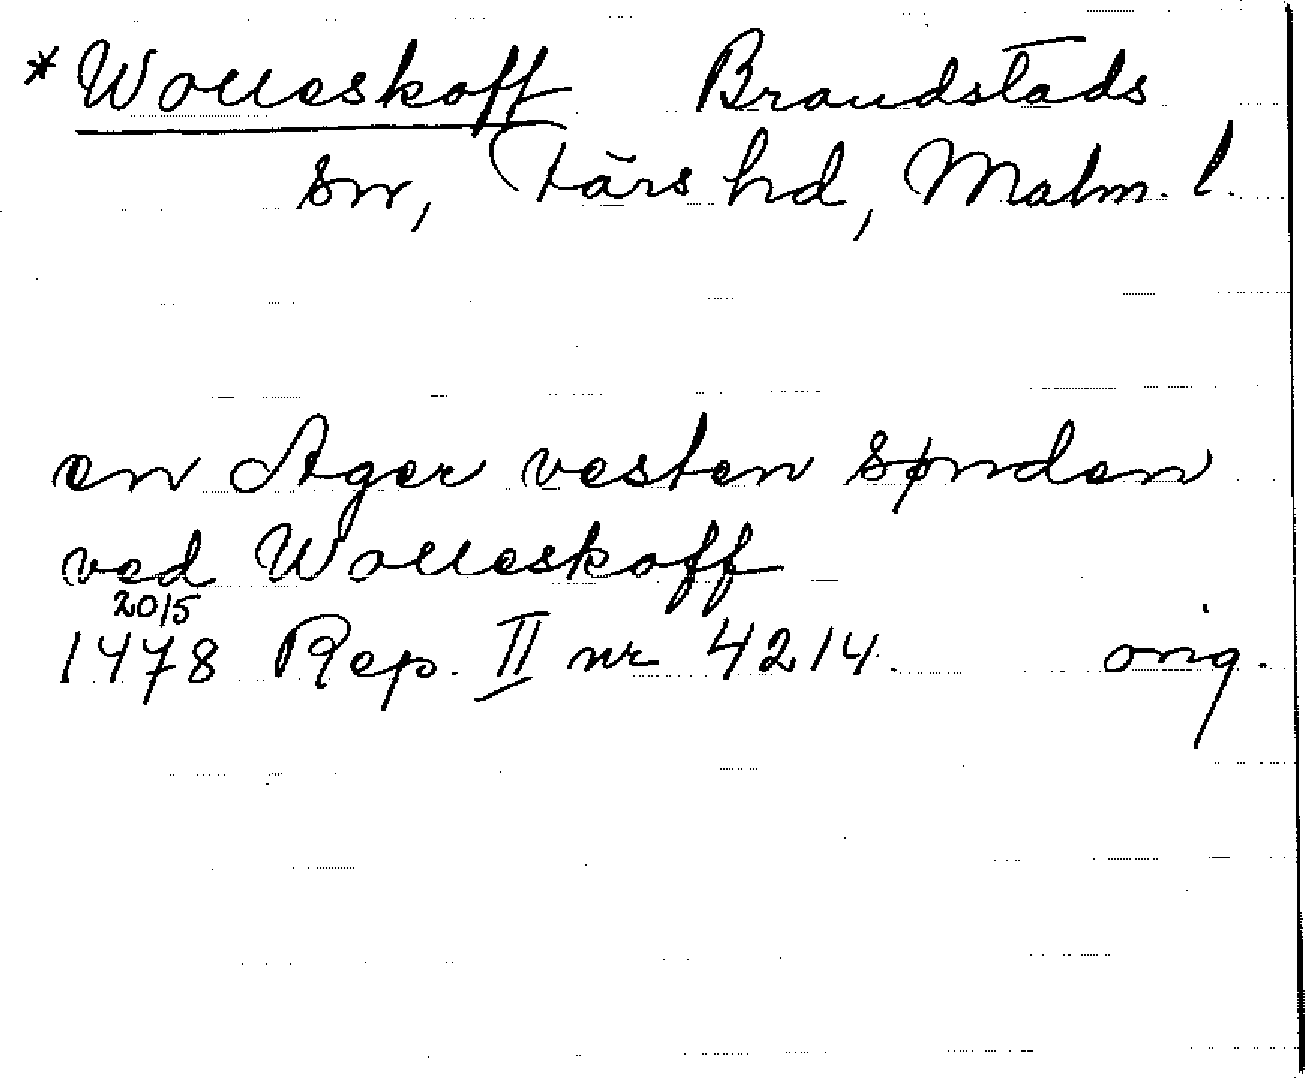 *Wolleskoff Brandstads
sn, Färs hd, Malm. l.
en Ager vesten synden
ved Wolleskoff
20/5
1478 Rep. II nr 4214. orig.